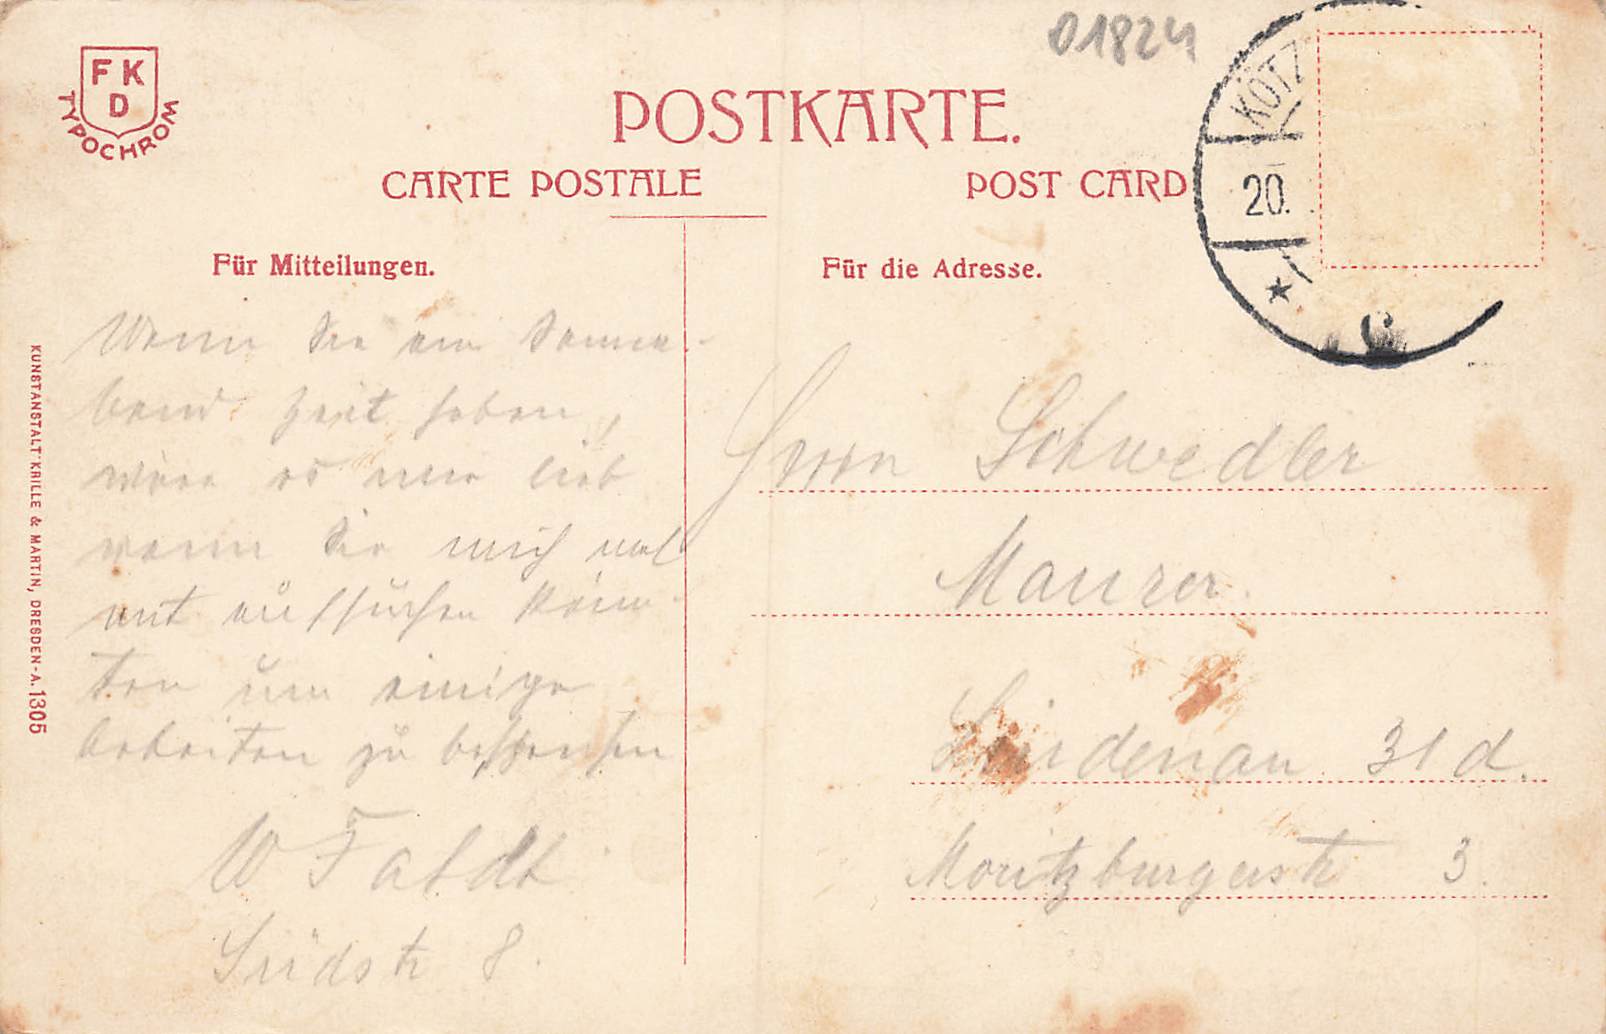 01824
FK
D
TYPOCHROM
POSTKARTE.
CARTE POSTALE
POST CARD
KÖTZ
20.
Für Mitteilungen.
Für die Adresse.
Wenn Sie am Sonna-
bend Zeit haben,
wäre es mir lieb
wenn Sie mich mal
mit aufsuchen könn-
ten um einige
Arbeiten zu besprechen
W
Südstr 8.
Herrn Schwedler
Maurer.
Lindenau 31 d.
Moritzburgerstr 3.
KUNSTANSTALT KRILLE & MARTIN, DRESDEN-A. 1305